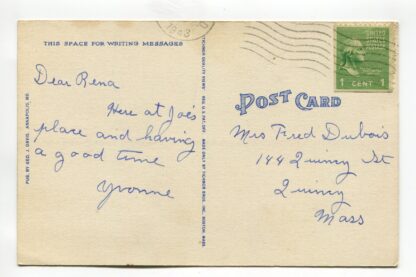 THIS SPACE FOR WRITING MESSAGES
Dear Rena
Here at Joe's
place and having
a good time
Yvonne
PUB. BY GEO. J. DAVIS, ANNAPOLIS, MD.
TICHNOR QUALITY VIEWS REG. U.S. PAT. OFF. MADE ONLY BY TICHNOR BROS., INC., BOSTON, MASS.
POST CARD
UNITED
STATES
POSTAGE
1 CENT 1
Mrs Fred Dubois
144 Quincy St
Quincy
Mass